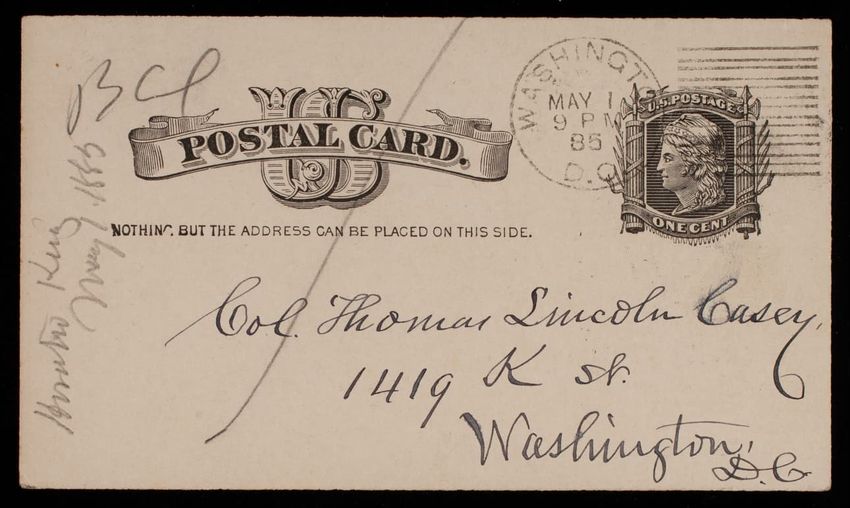 BCl
Horatio King
May 1. 1885
US
POSTAL CARD.
NOTHING BUT THE ADDRESS CAN BE PLACED ON THIS SIDE.
WASHINGT
MAY 1
9 PM
85
D.C.
U.S. POSTAGE
ONE CENT
Col. Thomas Lincoln Casey,
1419 K St.
Washington,
D.C.